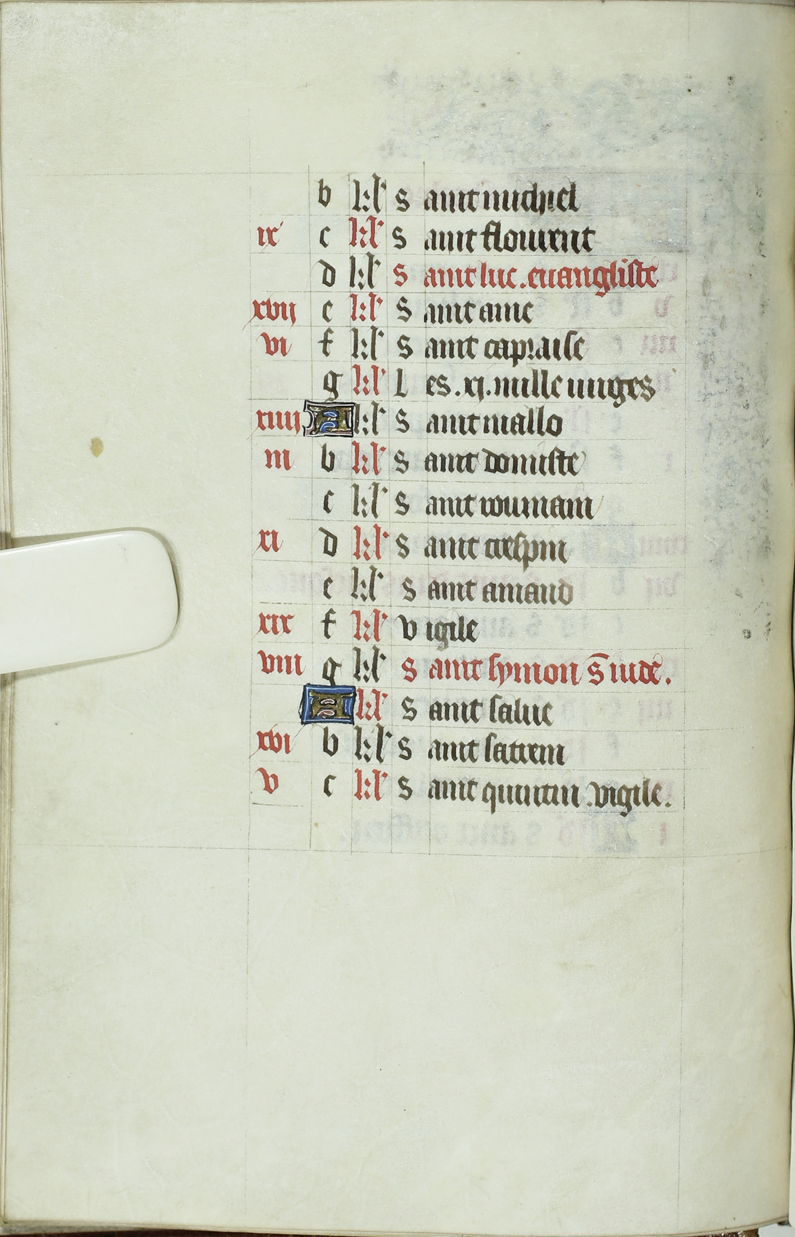 b kl' Saint michiel
ix c kl' Saint flourent
d kl' Saint luc. euangliste
xvij e kl' Saint ame
vi f kl' Saint capraise
g kl' Les .xj. mille uirges
xiiij A kl' Saint mallo
iij b kl' Saint domiste
c kl' Saint roumain
xi d kl' Saint crespin
e kl' Saint amand
xix f kl' Vigile
viii g kl' Saint symon S iude.
A kl' Saint salue
xvi b kl' Saint saturin
v c kl' Saint quintin .vigile.